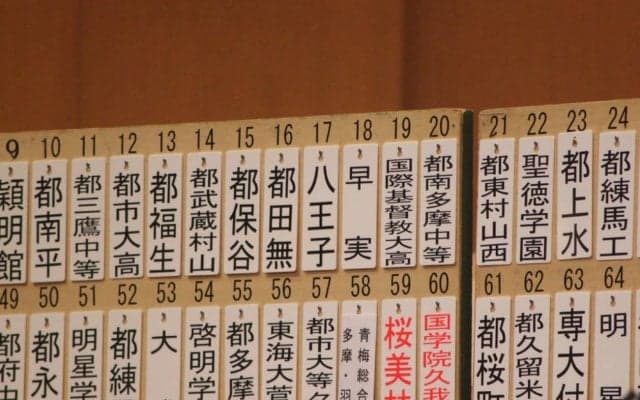 9 10 11 12 13 14 15 16 17 18 19 20 21 22 23 24
穎明館
都南平
都三鷹中等
都市大高
都福生
都武蔵村山
都保谷
都田無
八王子
早実
国際基督教大高
都南多摩中等
都東村山西
聖徳学園
都上水
都練馬工
49 50 51 52 53 54 55 56 57 58 59 60 61 62 63 64
都府中
都永
明星学
都練
大
啓明学
都多摩
東海大菅
都市大等々
青梅総合
多摩・羽
桜美林
国学院久我
都桜町
都久留米
専大付
明星